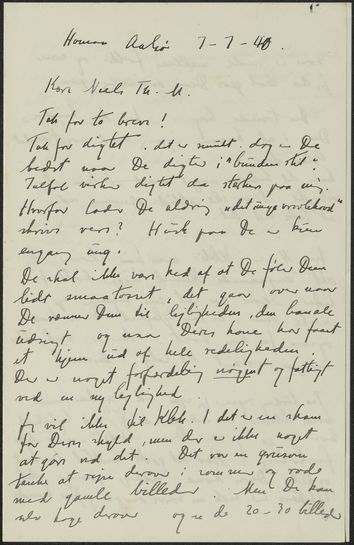 Homan Aalsø 7-7-40.
Kære Niels Th. M.
Tak for to breve!
Tak for digtet. det er smukt. dog er De
bedst naar De digter i "bunden stil"
virker digtet da stærkere paa mig.
Hvorfor lader De aldrig "det unge vrøvlehoved"
skrive vers? Husk paa De er kun
engang ung.
De skal ikke være ked af at De føler Dem
lidt smaatosset, det gaar over naar
De vænner Dem til lejligheden, den banale
udsigt og naar Deres kone har faaet
et hjem ud af hele redeligheden.
Der er noget forfærdelig nøgent og fattigt
ved en ny lejlighed.
Jeg vil ikke til Kbh. I det er en skam
for Deres skyld, men der er ikke noget
at gøre ved det. Det var en grusom
tanke at rejse derover i sommer og rode
med gamle billeder. Men De kan
selv tage derover og se de 20-30 billeder